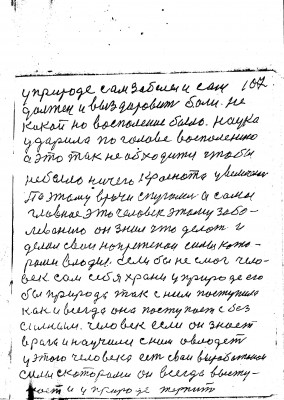 у природе сам заболел и сам 107
должен и выздаровит боли. не
какой но восполение было. наука
ударила по голове восполению
а это так не обходити чтобы
небыло ничего краснота увеличини
Поэтому врачи спугали а самы
главное это человек этому забо-
леванию он знал что делат и
делал свои
рыми владил. если бы не смог чело-
век сам себя храни у природе его
бы природа так с ним поступила
как и всегда она поступает с без
сильным. человек если он знает
врага и научился с ним овлодет
у этого человека ест сваи выработаной
силы скоторами он всегда высту-
пает и у природе терпит